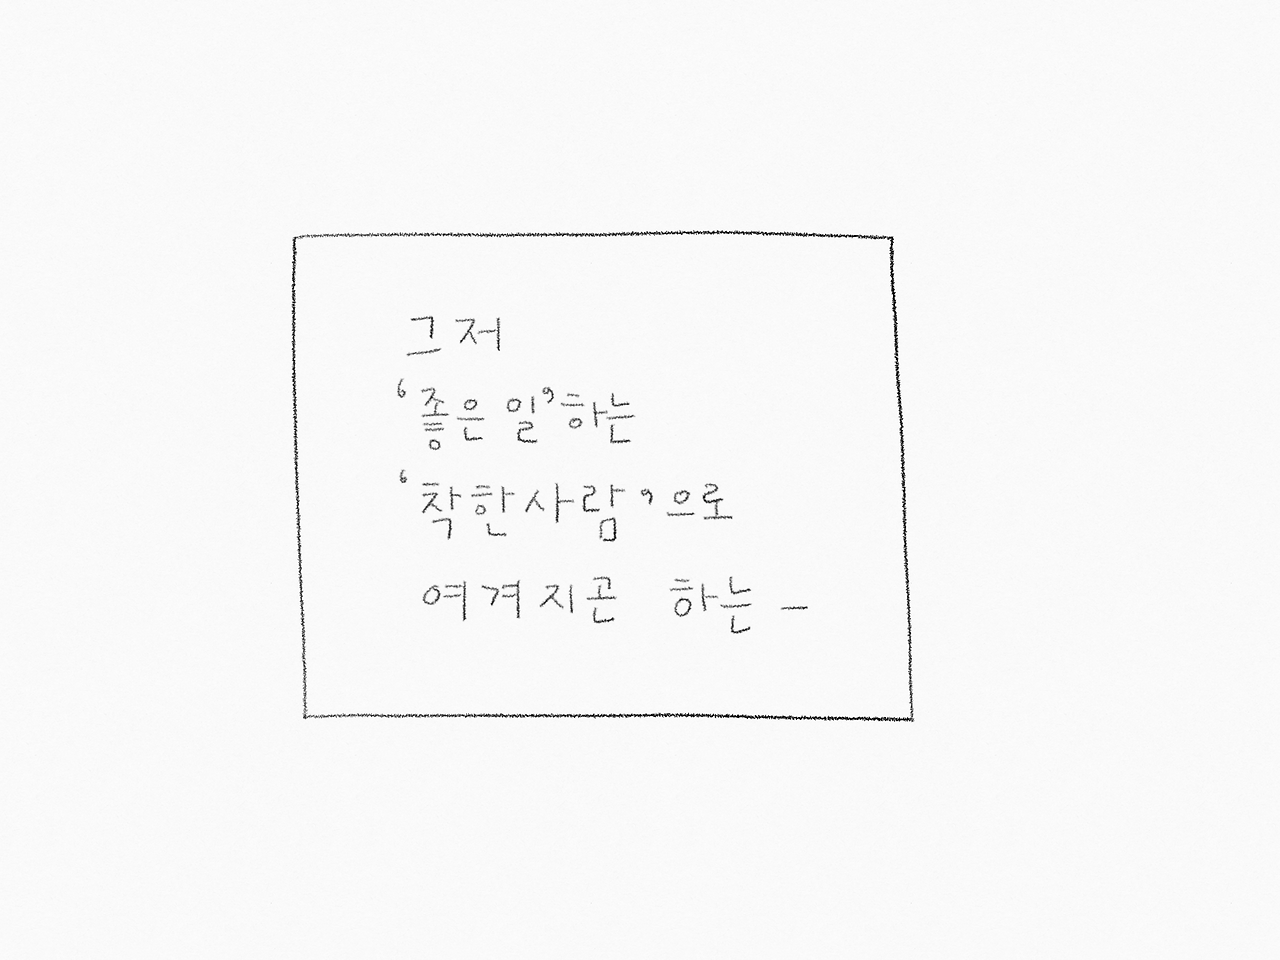 그저
‘좋은 일’하는
‘착한사람’으로
여겨지곤 하는 –